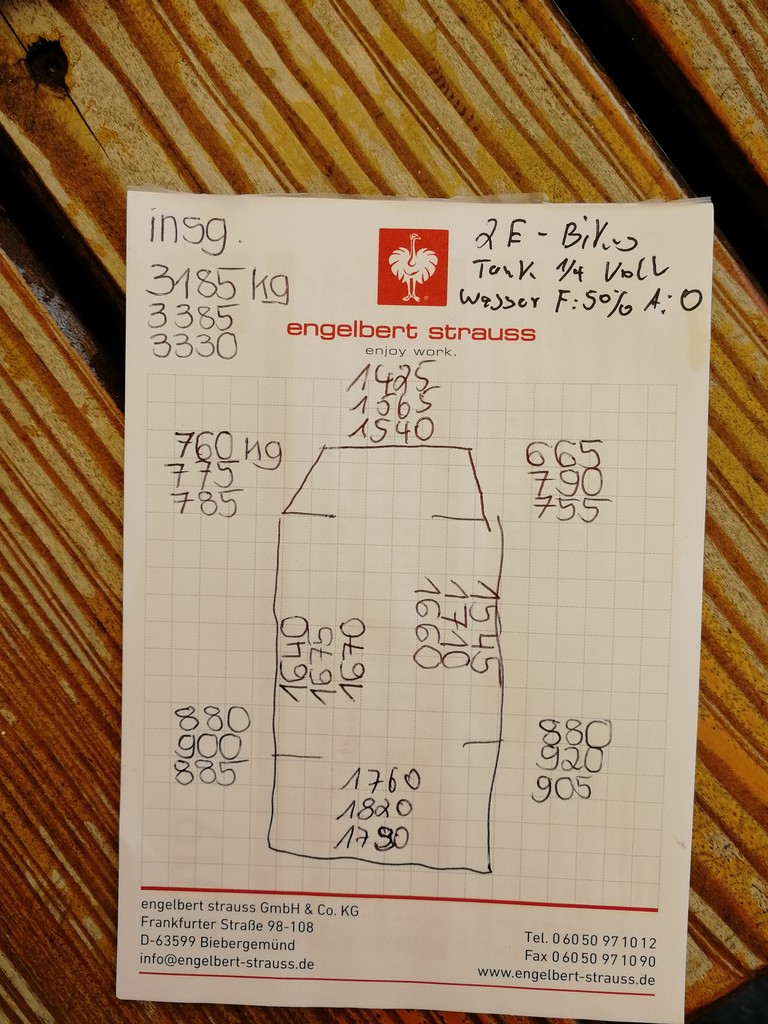 insg.
3185 kg
3385
3330
2 E - Bikes
Tank 1/4 Voll
Wasser F: 50% A: 0
engelbert strauss
enjoy work.
1425
1565
1540
760 kg
775
785
665
790
755
1640
1675
1670
1545
1710
1660
880
900
885
880
920
905
1760
1820
1790
engelbert strauss GmbH & Co. KG
Frankfurter Straße 98-108
D-63599 Biebergemünd
info@engelbert-strauss.de
Tel. 0 60 50 97 10 12
Fax 0 60 50 97 10 90
www.engelbert-strauss.de